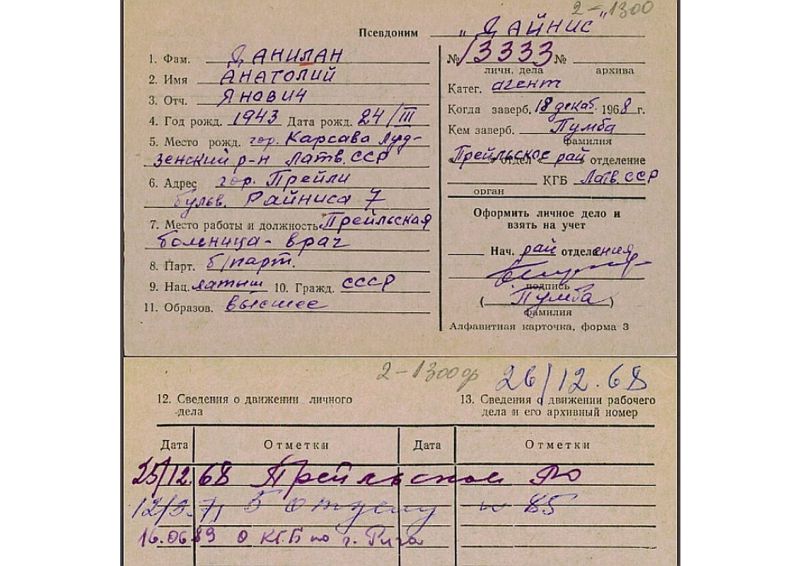 2-1300
Псевдоним „Дайнис"
1. Фам. Данилан
2. Имя Анатолий
3. Отч. Янович
4. Год рожд. 1943 Дата рожд. 24/III
5. Место рожд. гор. Карсава Луд-
зенский р-н Латв. ССР
6. Адрес гор. Прейли
бульв. Райниса 7
7. Место работы и должность Прейльская
больница - врач
8. Парт. б/парт.
9. Нац. латыш 10. Гражд. СССР
11. Образов. высшее
№ 13333 №
личн. дела архива
Катег. агент
Когда заверб. 18 декаб. 1968 г.
Кем заверб. Пумба
фамилия
Прейльское рай отделение
КГБ Латв. ССР
орган
Оформить личное дело и
взять на учет
Нач. рай отделения
подпись
( Пумба )
фамилия
Алфавитная карточка, форма 3
2-1300ф 26/12.68
12. Сведения о движении личного
дела
13. Сведения о движении рабочего
дела и его архивный номер
Дата Отметки Дата Отметки
25/12.68 Прейльском РО
5 отделу
85
16.06 83 О КГБ по г. Рига